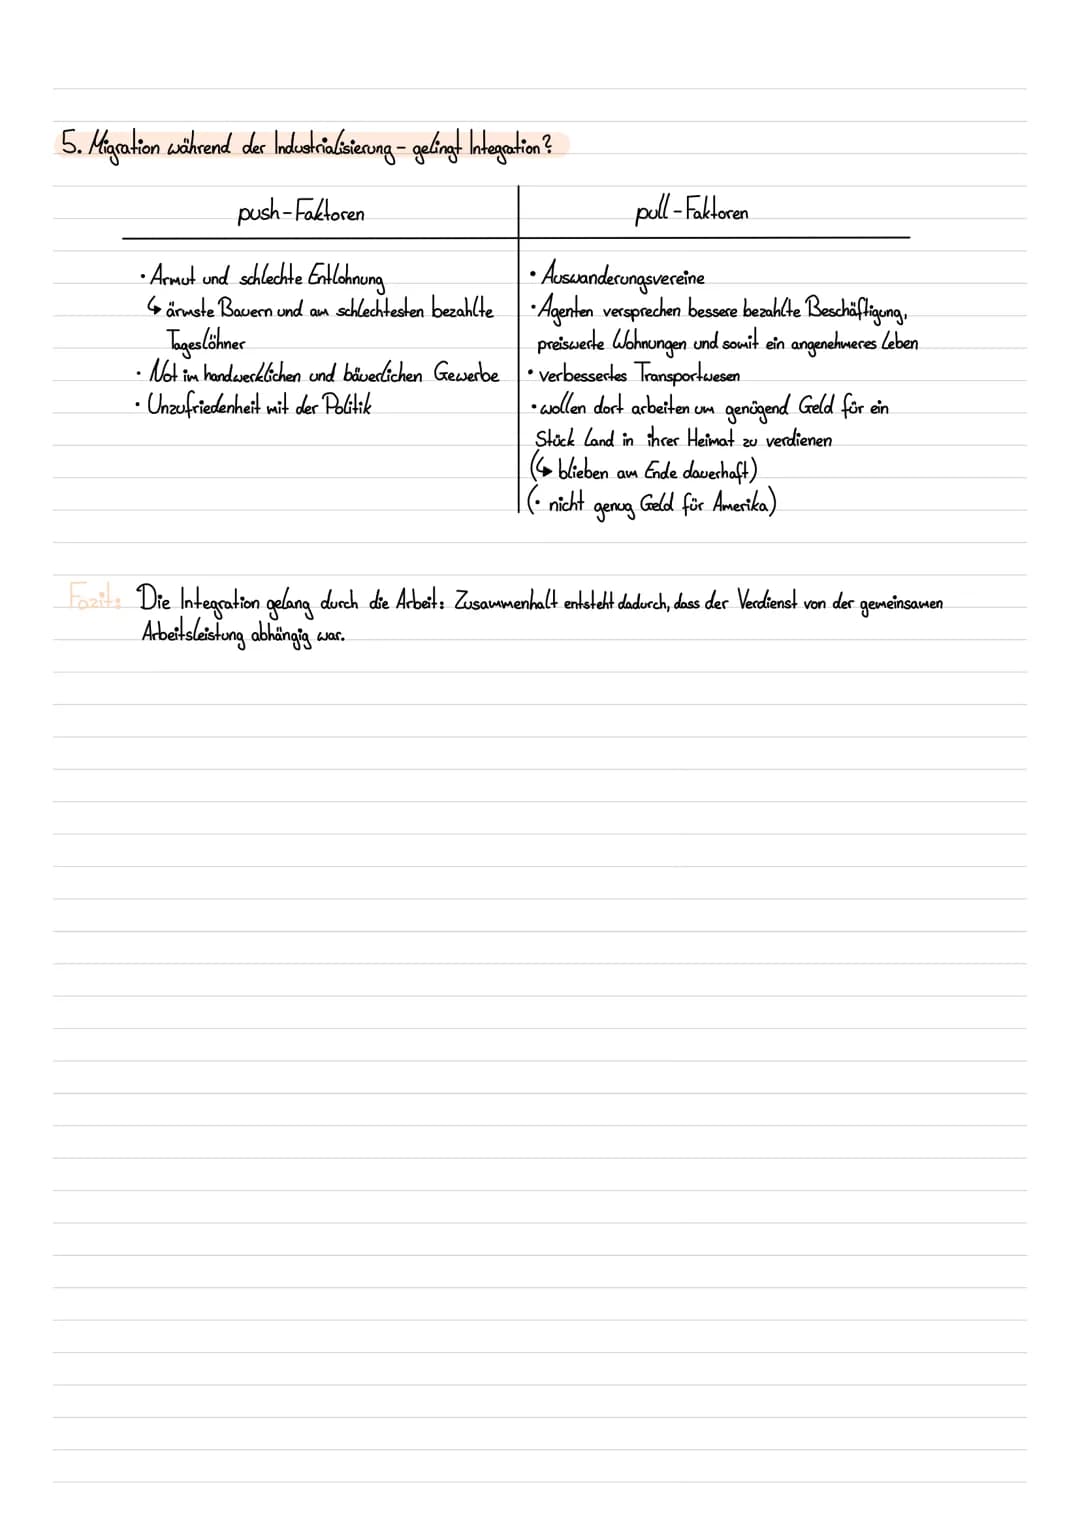 5. Migration während der Industrialisierung - gelingt Integration?
push-Faktoren
• Armut und schlechte Entlohnung
↳ ärmste Bauern und am schlechtesten bezahlte
Tageslöhner
• Not im handwerklichen und bäuerlichen Gewerbe
• Unzufriedenheit mit der Politik
pull-Faktoren
• Auswanderungsvereine
• Agenten versprechen bessere bezahlte Beschäftigung,
preiswerte Wohnungen und somit ein angenehmeres Leben
• verbessertes Transportwesen
• wollen dort arbeiten um genügend Geld für ein
Stück Land in ihrer Heimat zu verdienen
(↳ blieben am Ende dauerhaft)
(• nicht genug Geld für Amerika)
Fazit: Die Integration gelang durch die Arbeit: Zusammenhalt entsteht dadurch, dass der Verdienst von der gemeinsamen
Arbeitsleistung abhängig war.